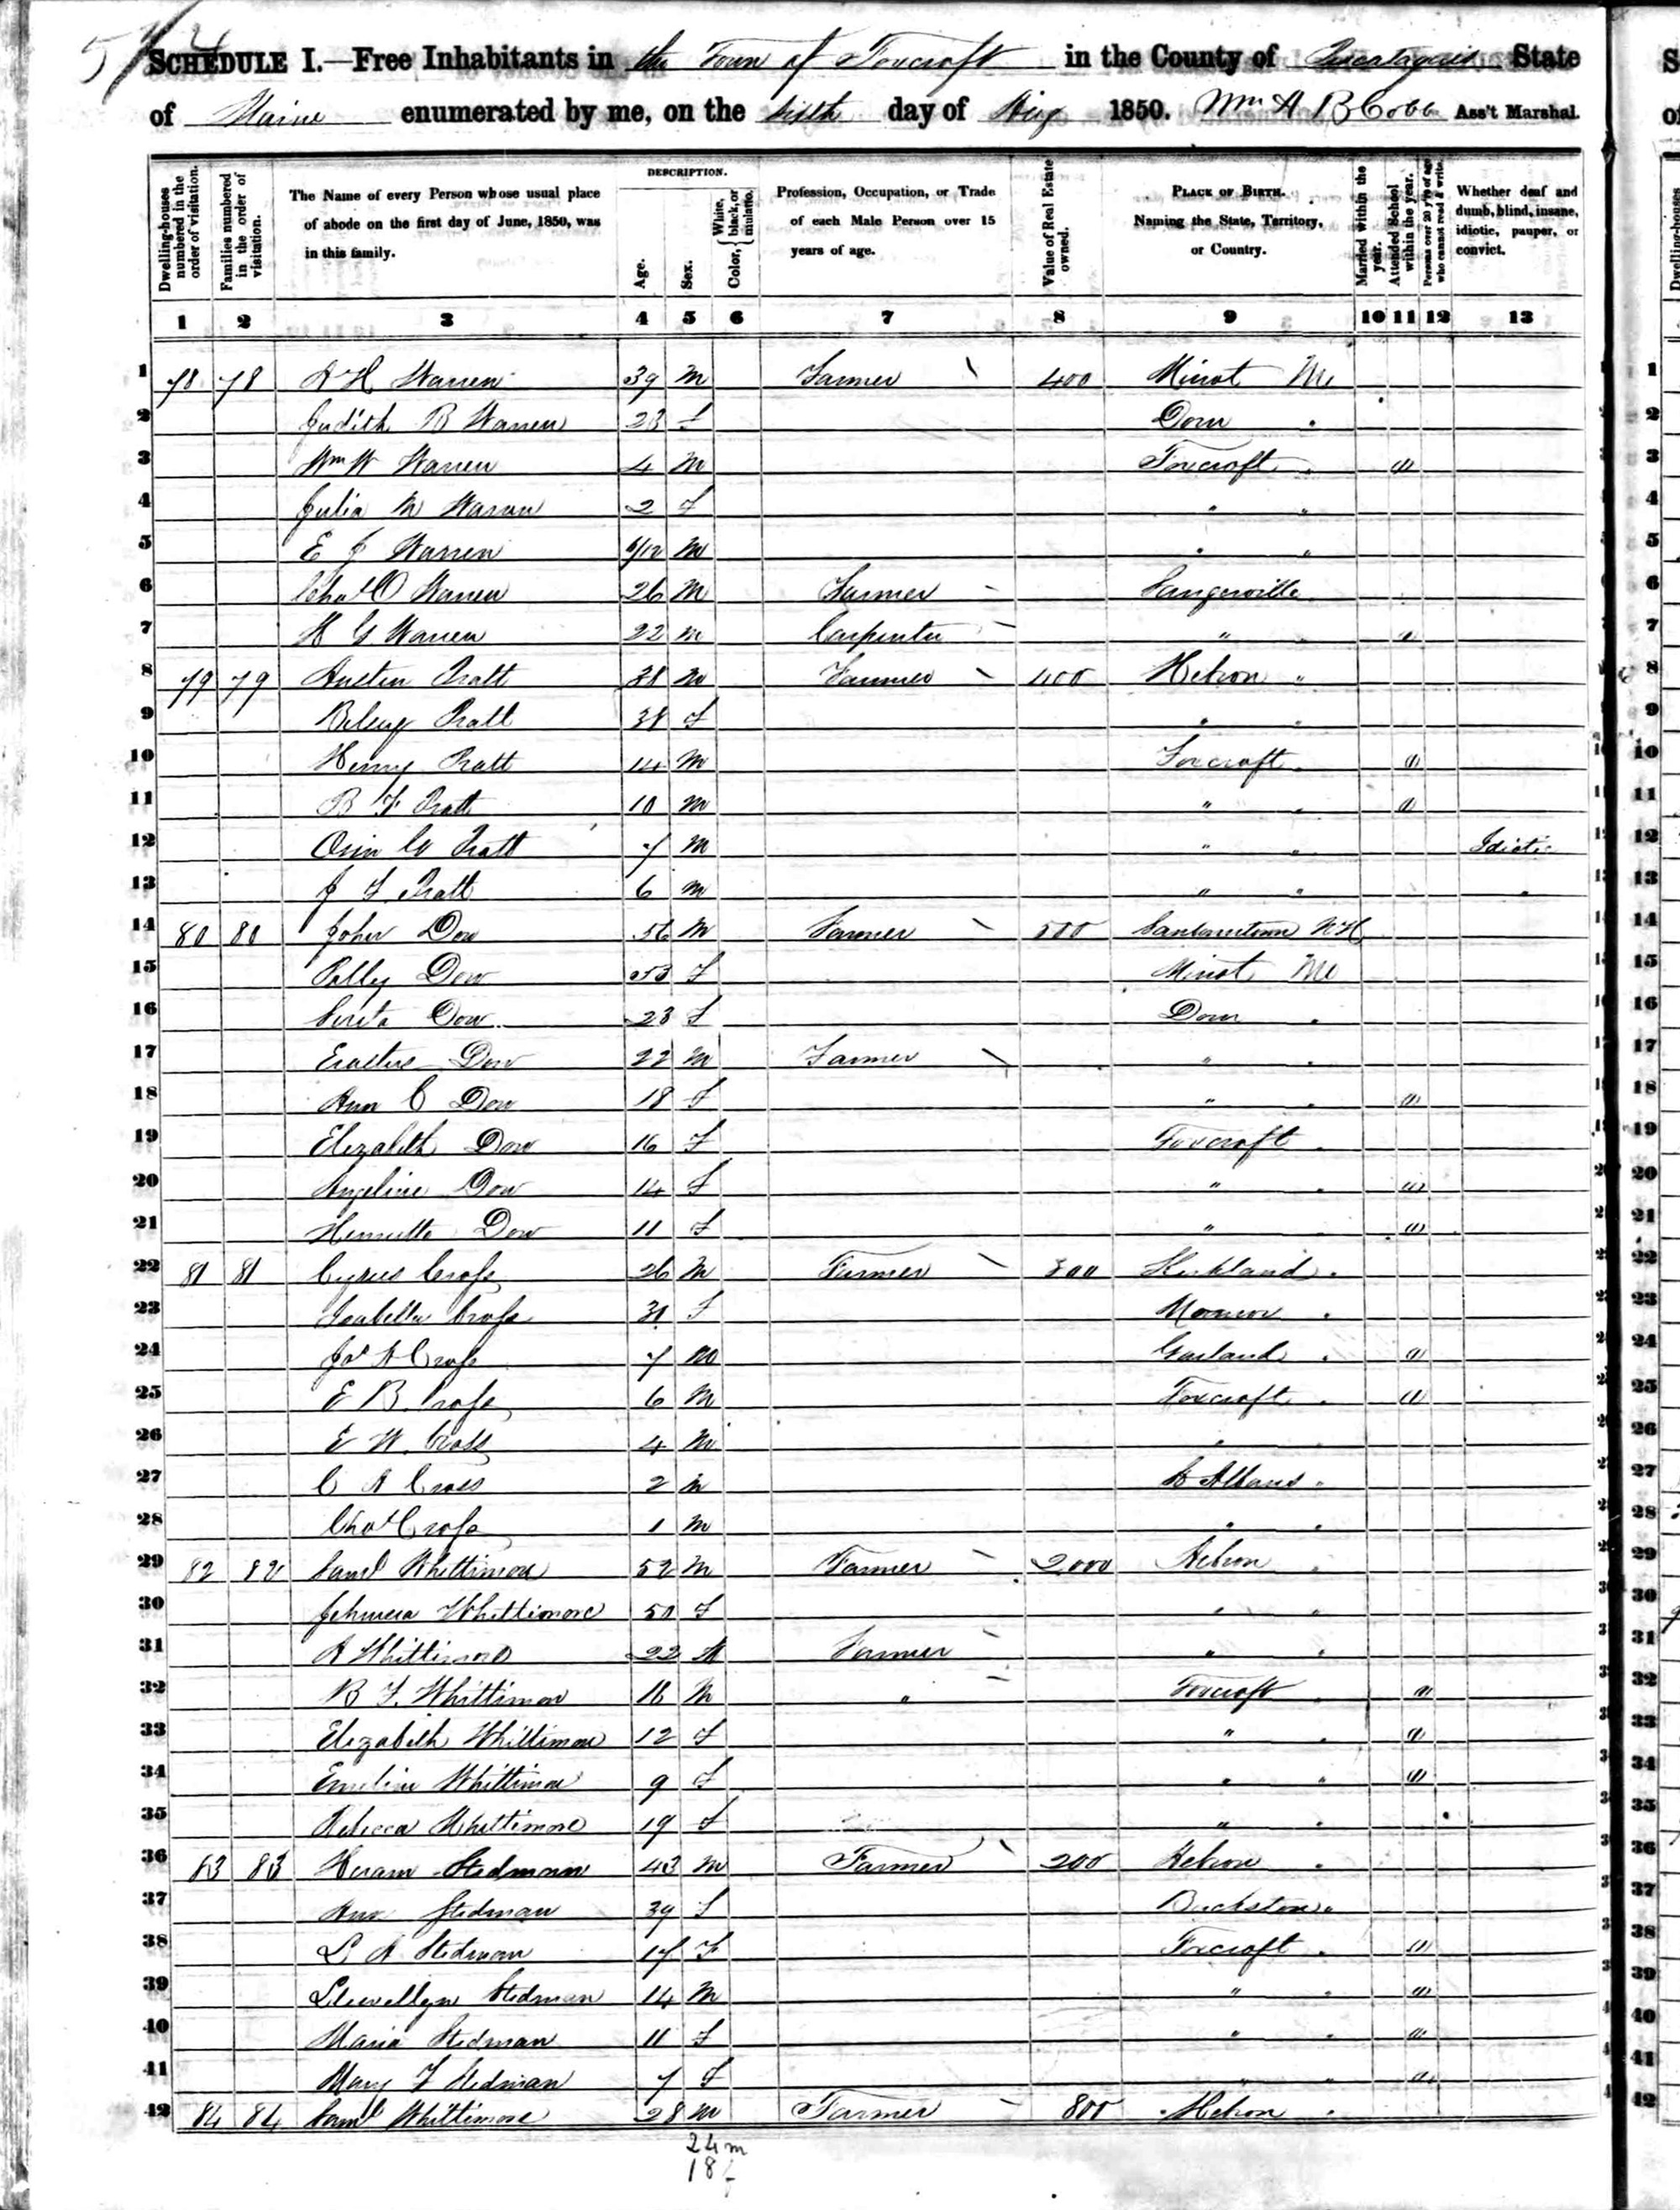 SCHEDULE I.—Free Inhabitants in the Town of Foxcroft in the County of Piscataquis State
of Maine enumerated by me, on the sixth day of Aug 1850. Wm A B Cobb Ass't Marshal.
Dwelling-houses numbered in the order of visitation.
Families numbered in the order of visitation.
The Name of every Person whose usual place of abode on the first day of June, 1850, was in this family.
DESCRIPTION.
Age.
Sex.
Color, { White, black, or mulatto.
Profession, Occupation, or Trade of each Male Person over 15 years of age.
Value of Real Estate owned.
PLACE OF BIRTH. Naming the State, Territory, or Country.
Married within the year.
Attended School within the year.
Persons over 20 y'rs of age who cannot read & write.
Whether deaf and dumb, blind, insane, idiotic, pauper, or convict.
1 2 3 4 5 6 7 8 9 10 11 12 13
1 78 78 A H Warren 39 M Farmer 400 Minot Me
2 Judith B Warren 23 F Dover "
3 Wm W Warren 4 M Foxcroft " 1
4 Julia M Warren 2 F " "
5 E J Warren M " "
6 Chas O Warren 26 M Farmer Sangerville
7 H G Warren 22 M Carpenter " " 1
8 79 79 Austin Pratt 38 M Farmer 400 Hebron "
9 Betsey Pratt 38 F " "
10 Henry Pratt 14 M Foxcroft " 1
11 B F Pratt 10 M " " 1
12 Orin Pratt 7 M " " Idiotic
13 J S Pratt 6 M " " "
14 80 80 John Dow 56 M Farmer 500 Sanbornton N H
15 Polly Dow 53 F Minot Me
16 Dow 23 F Dover "
17 Erastus Dow 22 M Farmer " "
18 Ann C Dow 18 F " " 1
19 Elizabeth Dow 16 F Foxcroft "
20 Angeline Dow 14 F " " 1
21 Henrietta Dow 11 F " " 1
22 81 81 Cyrus Cross 26 M Farmer 300 Kirkland "
23 Isabella Cross F Monson "
24 Jas A Cross 7 M Garland " 1
25 E B Cross 6 M Foxcroft " 1
26 E W Cross 4 M " "
27 C A Cross 2 M St Albans "
28 Chas Cross 1 M " "
29 82 82 Saml Whittimore 52 M Farmer 2000 Hebron "
30 Whittimore 50 F " "
31 A Whittimore 22 M Farmer " "
32 B F Whittimore 16 M " Foxcroft " 1
33 Elizabeth Whittimore 12 F " " 1
34 Emeline Whittimore 9 F " " 1
35 Rebecca Whittimore 19 F " "
36 83 83 Hiram Stedman 43 M Farmer 200 Hebron "
37 Ann Stedman 39 F "
38 L A Stedman 17 F Foxcroft " 1
39 Llewellyn Stedman 14 M " " 1
40 Maria Stedman 11 F " " 1
41 Mary F Stedman 7 F " " 1
42 84 84 Saml Whittimore 28 M Farmer 800 Hebron "
24 m
18 f